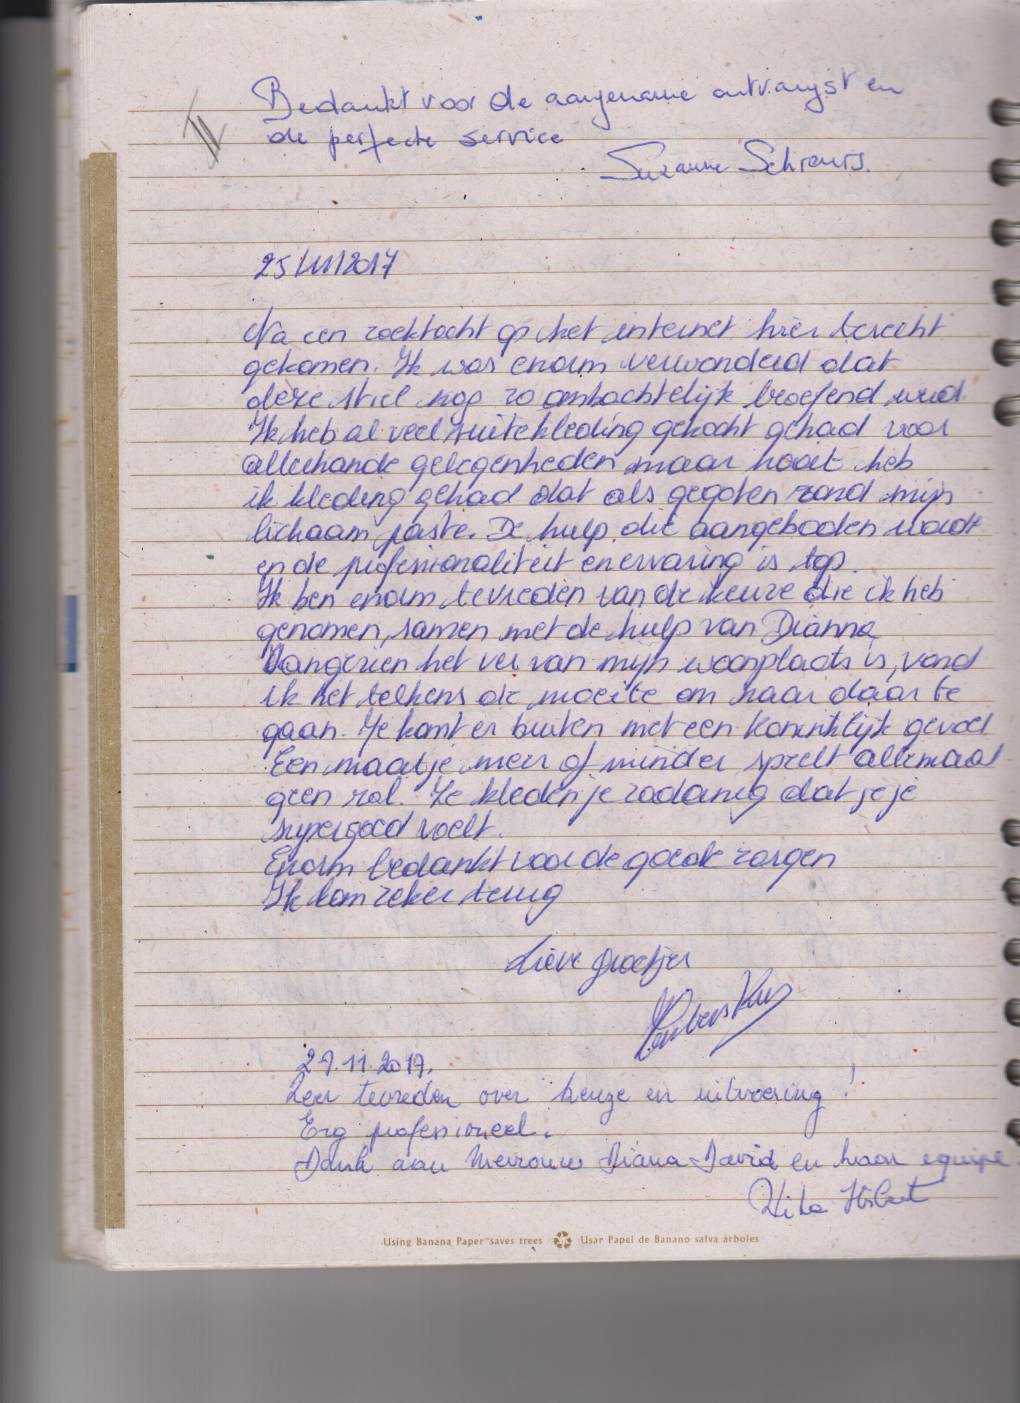 Bedankt voor de aangename ontvangst en
de perfecte service
Suzanne Schreurs.
25/11/2017
Na een zoektocht op het internet hier terecht
gekomen. Ik was enorm verwonderd dat
deze stiel nog zo ambachtelijk beoefend werd.
Ik heb al veel suitekleding gekocht gehad voor
allerhande gelegenheden maar nooit heb
ik kleding gehad dat als gegoten rond mijn
lichaam paste. De hulp die aangeboden wordt
en de professionaliteit en ervaring is top.
Ik ben enorm tevreden van de keuze die ik heb
genomen, samen met de hulp van Dianna
Aangezien het ver van mijn woonplaats is, vond
ik het telkens de moeite om naar daar te
gaan. Je komt er buiten met een koninklijk gevoel
Een maatje meer of minder speelt allemaal
geen rol. Ze kleden je zodanig dat je je
supergoed voelt.
Enorm bedankt voor de goede zorgen
Ik kom zeker terug
Lieve groetjes
27.11.2017.
Zeer tevreden over keuze en uitvoering!
Erg professioneel.
Dank aan Mevrouw Diana David en haar equipe
Using Banana Paper saves trees Usar Papel de Banano salva árboles